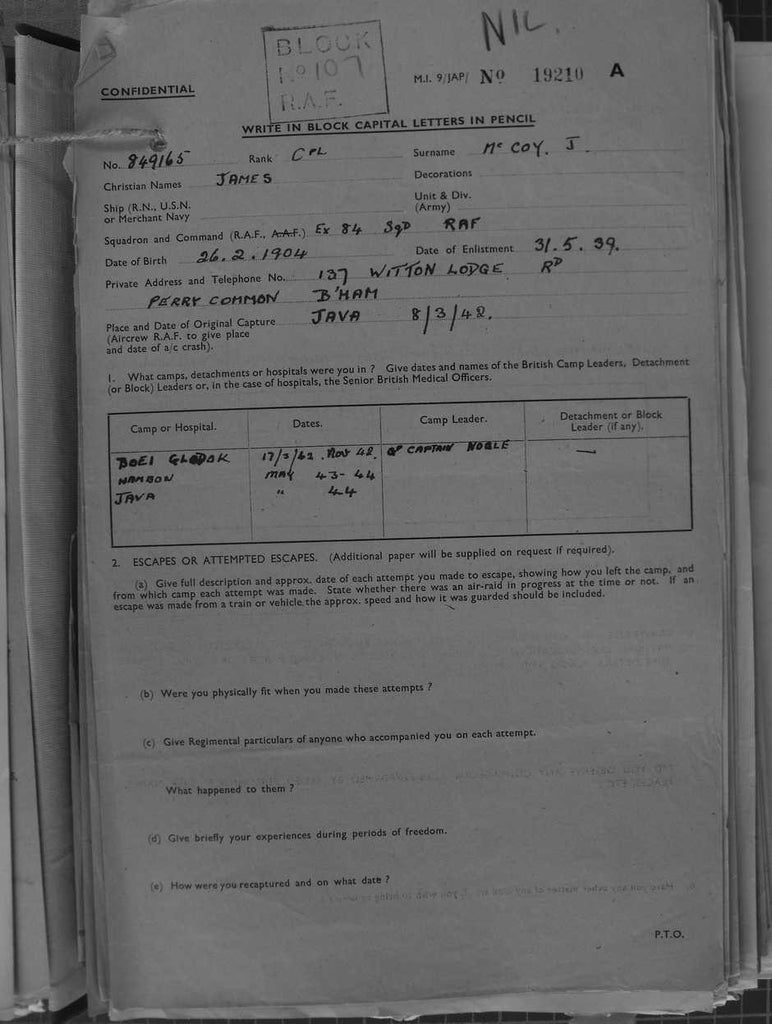 NIL.
BLOCK
No 107
R.A.F.
M.I. 9/JAP/ No 19210 A
CONFIDENTIAL
WRITE IN BLOCK CAPITAL LETTERS IN PENCIL
No. 849165 Rank CPL Surname Mc COY. J.
Christian Names JAMES Decorations
Ship (R.N., U.S.N. or Merchant Navy Unit & Div. (Army)
Squadron and Command (R.A.F., A.A.F.) Ex 84 SqD RAF
Date of Birth 26.2.1904 Date of Enlistment 31.5.39.
Private Address and Telephone No. 137 WITTON LODGE RD
PERRY COMMON B'HAM
Place and Date of Original Capture JAVA 8/3/42.
(Aircrew R.A.F. to give place
and date of a/c crash).
1. What camps, detachments or hospitals were you in ? Give dates and names of the British Camp Leaders, Detachment
(or Block) Leaders or, in the case of hospitals, the Senior British Medical Officers.
Camp or Hospital. Dates. Camp Leader. Detachment or Block Leader (if any).
BOEI GLODOK 17/3/42 . Nov 42. GP CAPTAIN NOBLE —
MAY 43-44
JAVA " 44
2. ESCAPES OR ATTEMPTED ESCAPES. (Additional paper will be supplied on request if required).
(a) Give full description and approx. date of each attempt you made to escape, showing how you left the camp, and
from which camp each attempt was made. State whether there was an air-raid in progress at the time or not. If an
escape was made from a train or vehicle, the approx. speed and how it was guarded should be included.
(b) Were you physically fit when you made these attempts ?
(c) Give Regimental particulars of anyone who accompanied you on each attempt.
What happened to them ?
(d) Give briefly your experiences during periods of freedom.
(e) How were you recaptured and on what date ?
P.T.O.